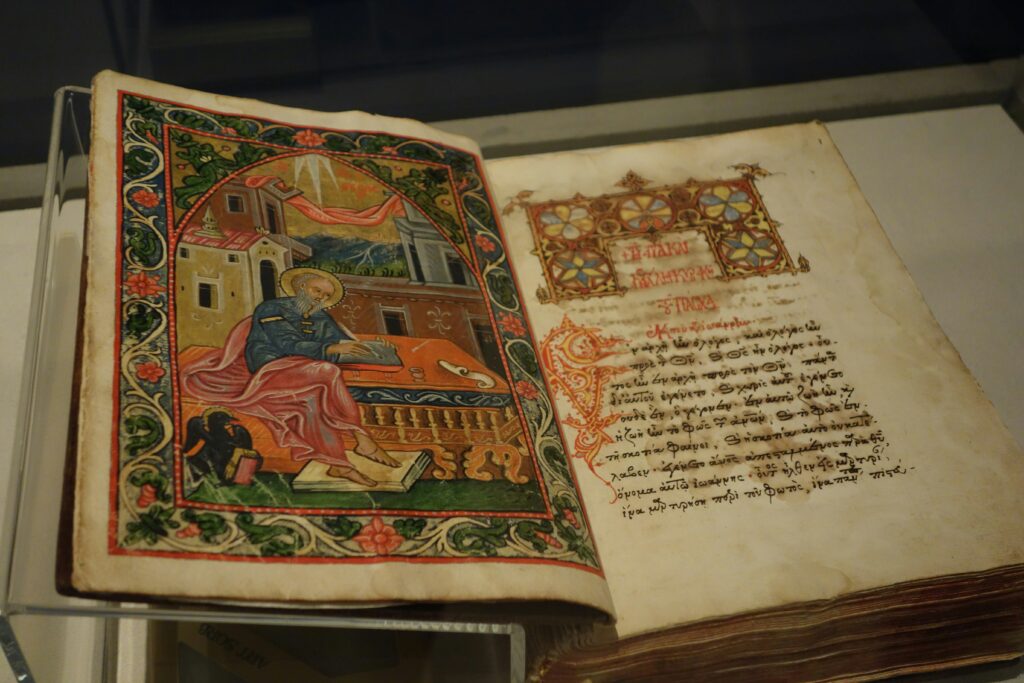 ΤΟΥ ΠΑΣΧΑ
ἐν ἀρχῇ ἦν ὁ λόγος, καὶ ὁ λόγος ἦν
πρὸς τὸν Θν. καὶ Θς ἦν ὁ λόγος. οὗ
τος ἦν ἐν ἀρχῇ πρὸς τὸν Θν. πάντ
δι αὐτοῦ ἐγένετο. καὶ χωρὶς αὐτοῦ ἐγένετο
οὐδὲ ἕν. ὃ γέγονεν. ἐν αὐτῷ ζωὴ ἦν. καὶ
ἡ ζωὴ ἦν τὸ φῶς τῶν ανων. καὶ τὸ φῶς ἐν
τῇ σκοτίᾳ φαίνει. καὶ ἡ σκοτία αὐτὸ οὐ κατέ
λαβεν. ἐγένετο ανος ἀπεσταλμένος παρὰ Θυ,
ὄνομα αὐτῷ Ἰωάννης. οὗτος ἦλθεν εἰς μαρτυρί
ἵνα μαρτυρήσῃ περὶ τοῦ φωτὸς, ἵνα παν πιστευ.